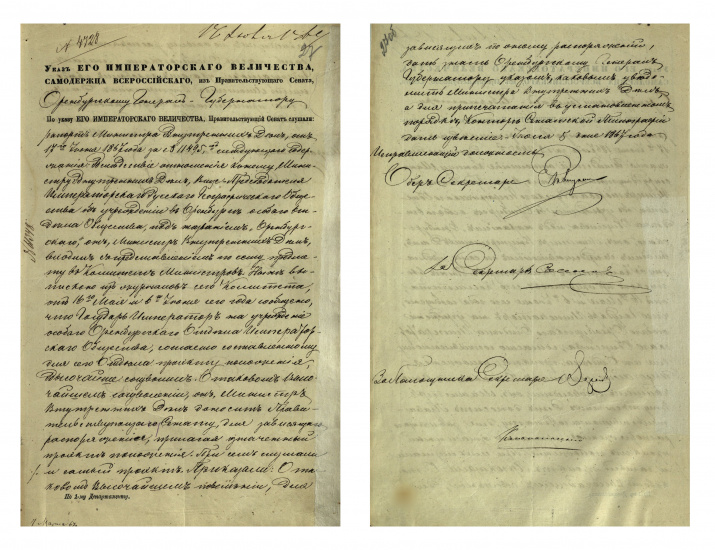 № 4728
Указъ ЕГО ИМПЕРАТОРСКАГО ВЕЛИЧЕСТВА,
САМОДЕРЖЦА ВСЕРОССІЙСКАГО, изъ Правительствующаго Сената,
Оренбургскому Генералъ-Губернатору
По указу ЕГО ИМПЕРАТОРСКАГО ВЕЛИЧЕСТВА, Правительствующій Сенатъ слушали:
рапортъ Министра Внутреннихъ Дѣлъ, отъ
17го Іюня 1867 года за № 11495
ему, Мини-
стру Внутреннихъ Дѣлъ, Вице-Предсѣдателя
Императорскаго Русскаго Географическаго Обще-
ства объ учрежденіи въ Оренбургѣ особаго От-
дѣла Общества, подъ названіемъ Оренбург-
скаго, онъ, Министръ Внутреннихъ Дѣлъ,
входилъ съ представленіемъ по сему предме-
ту въ Комитетъ Министровъ. Нынѣ вы-
пискою изъ журналовъ сего Комитета,
отъ 16го Мая и 6го Іюня сего года сообщено,
что Государь Императоръ на учрежденіе
особаго Оренбургскаго Отдѣла Император-
скаго Общества, согласно составленному
для сего Отдѣла проэкту положенія,
Высочайше соизволилъ. О таковомъ Высо-
чайшемъ соизволеніи, онъ, Министръ
Внутреннихъ Дѣлъ доноситъ Прави-
тельствующему Сенату, для зависящаго
распоряженія, прилагая означенный
проэктъ положенія. При семъ слушали
и самый проэктъ. Приказали: О та-
ковомъ Высочайшемъ повелѣніи, для
По 1-му Департаменту.
зависящихъ по оному распоряженій,
дать знать Оренбургскому Генералъ-
Губернатору указомъ, каковымъ увѣдо-
мить и Министра Внутреннихъ Дѣлъ,
а для припечатанія въ установленномъ
порядкѣ, Конторѣ Сенатской Типографіи
дать извѣстіе. Іюля 5 дня 1867 года
Исправляющій должность
Оберъ Секретаря
Секретарь
За Помощника Секретаря